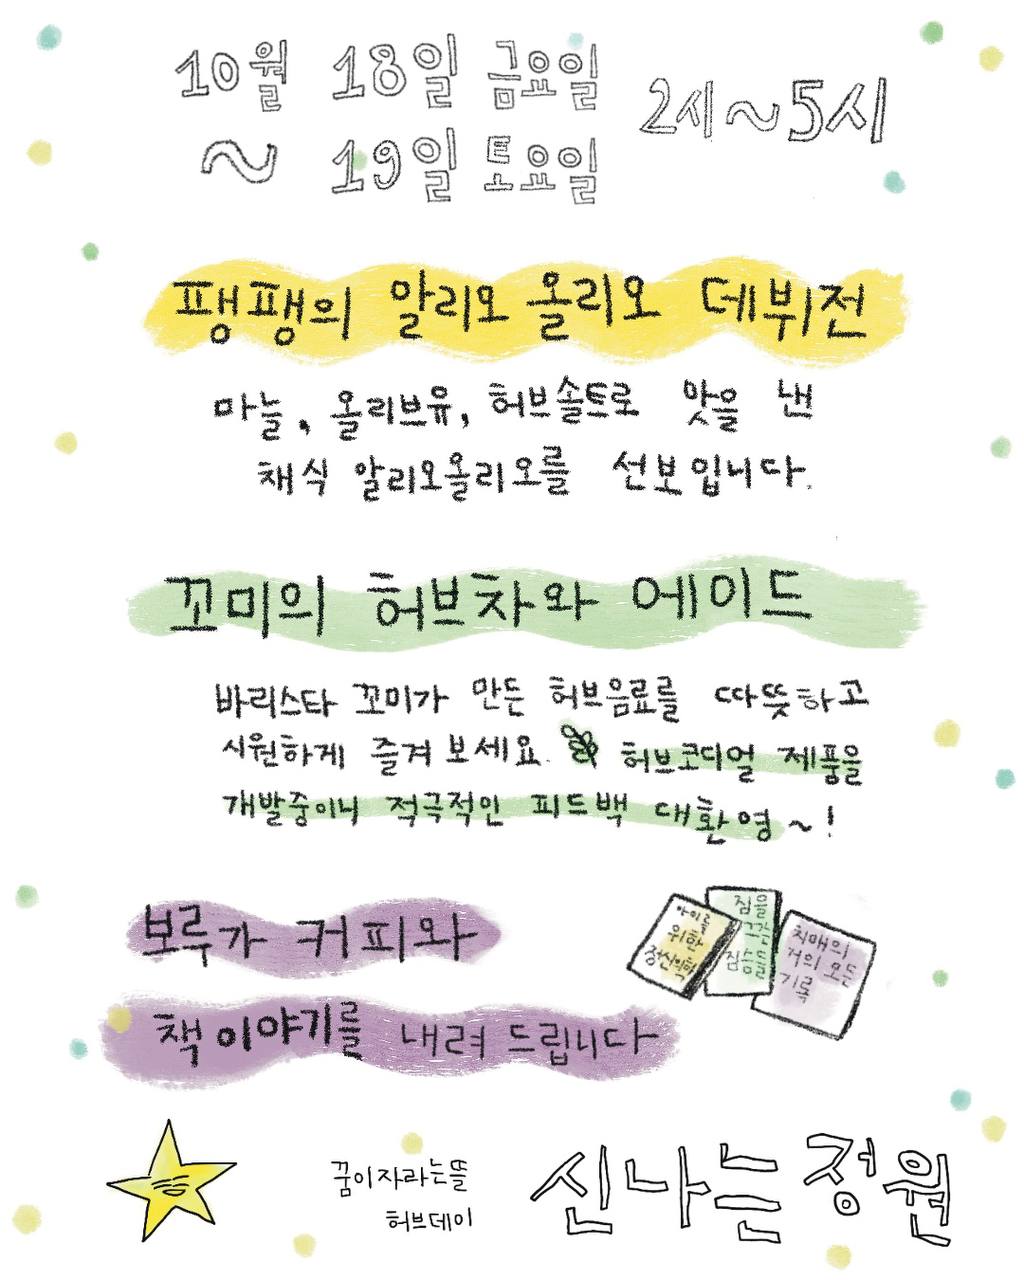 10월 18일 금요일
~ 19일 토요일
2시~5시
팽팽의 알리오 올리오 데뷔전
마늘, 올리브유, 허브솔트로 맛을 낸
채식 알리오올리오를 선보입니다.
꼬미의 허브차와 에이드
바리스타 꼬미가 만든 허브음료를 따뜻하고
시원하게 즐겨 보세요.
허브코디얼 제품을
개발중이니 적극적인 피드백 대환영~!
보루가 커피와
책 이야기를 내려 드립니다
위한
짐을
치매의
거의 모든
기록
꿈이자라는뜰
허브데이
신나는 정원